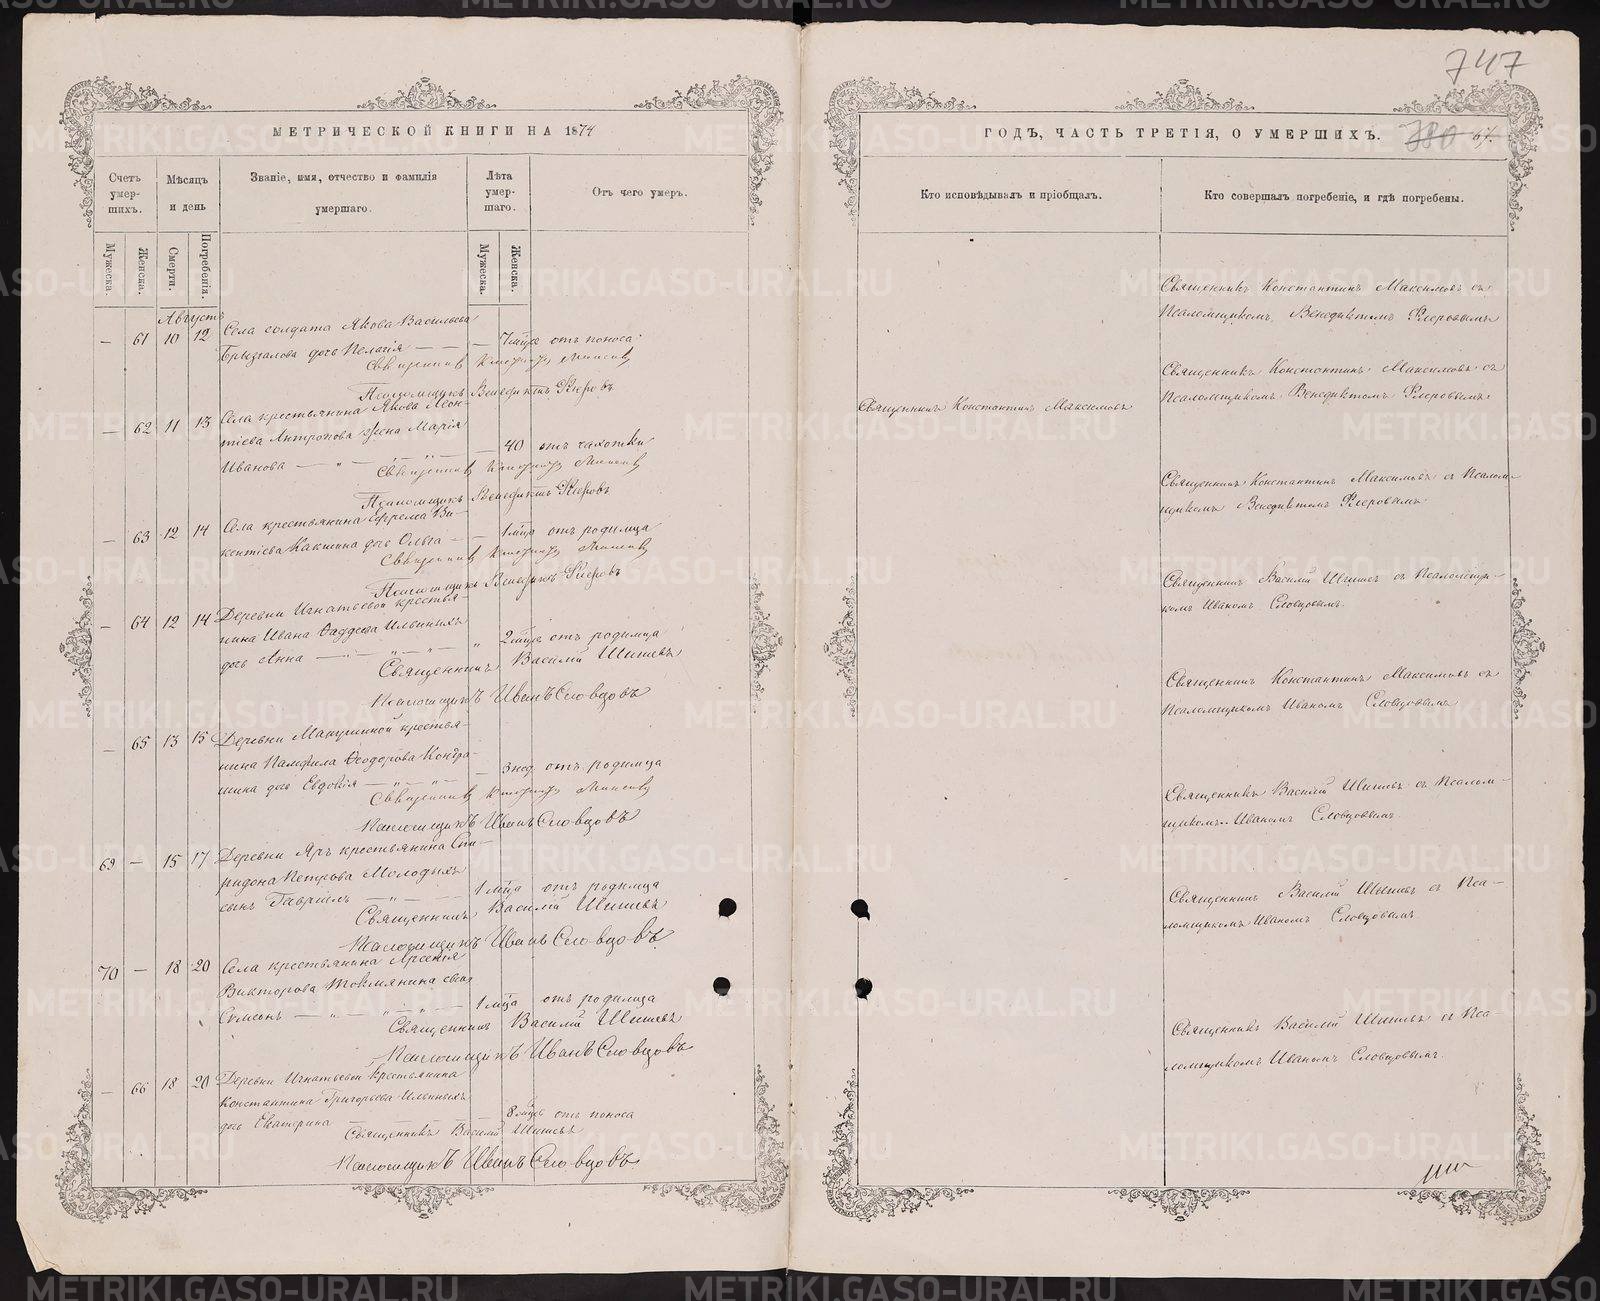 747
МЕТРИЧЕСКОЙ КНИГИ НА 1874
ГОДЪ, ЧАСТЬ ТРЕТІЯ, О УМЕРШИХЪ.
780
Счетъ умер-шихъ.
Мѣсяцъ и день
Званіе, имя, отчество и фамилія умершаго.
Лѣта умер-шаго.
Отъ чего умеръ.
Кто исповѣдывалъ и пріобщалъ.
Кто совершалъ погребеніе, и гдѣ погребены.
Мужеска.
Женска.
Смерти.
Погребенія.
Мужеска.
Женска.
Августъ
— 61 10 12 Села солдата Якова Васильева
Брызгалова дочь Пелагія — — — 7 мѣця отъ поноса
Псаломщикъ Венедиктъ Флеровъ
Священникъ Константинъ Максимовъ съ
Псаломщикомъ Венедиктомъ Флеровымъ
— 62 11 13 Села крестьянина Якова Леон-
тіева Антропова жена Марія
Иванова — „ — — 40 отъ чахотки
Псаломщикъ Венедиктъ Флеровъ
Священникъ Константинъ Максимовъ
Священникъ Константинъ Максимовъ съ
Псаломщикомъ Венедиктомъ Флеровымъ
— 63 12 14 Села крестьянина Ефрема Ви-
кентіева Какшина дочь Ольга — — 1 мѣця отъ родимца
Псаломщикъ Венедиктъ Флеровъ
Священникъ Константинъ Максимовъ съ Псалом-
щикомъ Венедиктомъ Флеровымъ
— 64 12 14 Деревни Игнатьевой крестья-
нина Ивана Фаддеева Ильиныхъ
дочь Анна — „ — „ — „ 2 мѣця отъ родимца
Священникъ Василій Шишевъ
Псаломщикъ Иванъ Словцовъ
Священникъ Василій Шишевъ съ Псаломщи-
комъ Иваномъ Словцовымъ.
— 65 13 15 Деревни Макушиной крестья-
нина Памфила Ѳеодорова Кондра-
шина дочь Евдокія — „ — „ — — 3 нед отъ родимца
Псаломщикъ Иванъ Словцовъ
Священникъ Константинъ Максимовъ съ
Псаломщикомъ Иваномъ Словцовымъ
69 — 15 17 Деревни Яръ крестьянина Спи-
ридона Петрова Молодыхъ
сынъ Гавріилъ — „ — 1 мѣца отъ родимца
Священникъ Василій Шишевъ
Псаломщикъ Иванъ Словцовъ
Священникъ Василій Шишевъ съ Псалом-
щикомъ Иваномъ Словцовымъ
70 — 18 20 Села крестьянина Арсенія
Викторова сынъ
Сумсонъ — „ — „ — „ — 1 мѣца отъ родимца
Священникъ Василій Шишевъ
Псаломщикъ Иванъ Словцовъ
Священникъ Василій Шишевъ съ Пса-
ломщикомъ Иваномъ Словцовымъ
— 66 18 20 Деревни Игнатьевой крестьянина
Константина Григорьева Ильиныхъ
дочь Екатерина — 8 мѣця отъ поноса
Священникъ Василій Шишевъ
Псаломщикъ Иванъ Словцовъ
Священникъ Василій Шишевъ съ Пса-
ломщикомъ Иваномъ Словцовымъ.
METRIKI.GASO-URAL.RU